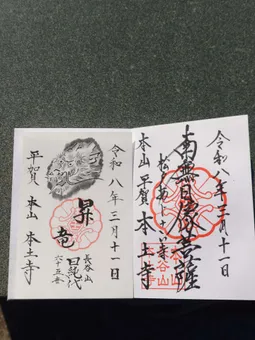 令和八年三月十一日
昇
竜
長谷山
日純代
六十五世
平賀 本山 本土寺
令和八年三月十一日
南無日像菩薩
本山 平賀 本土寺